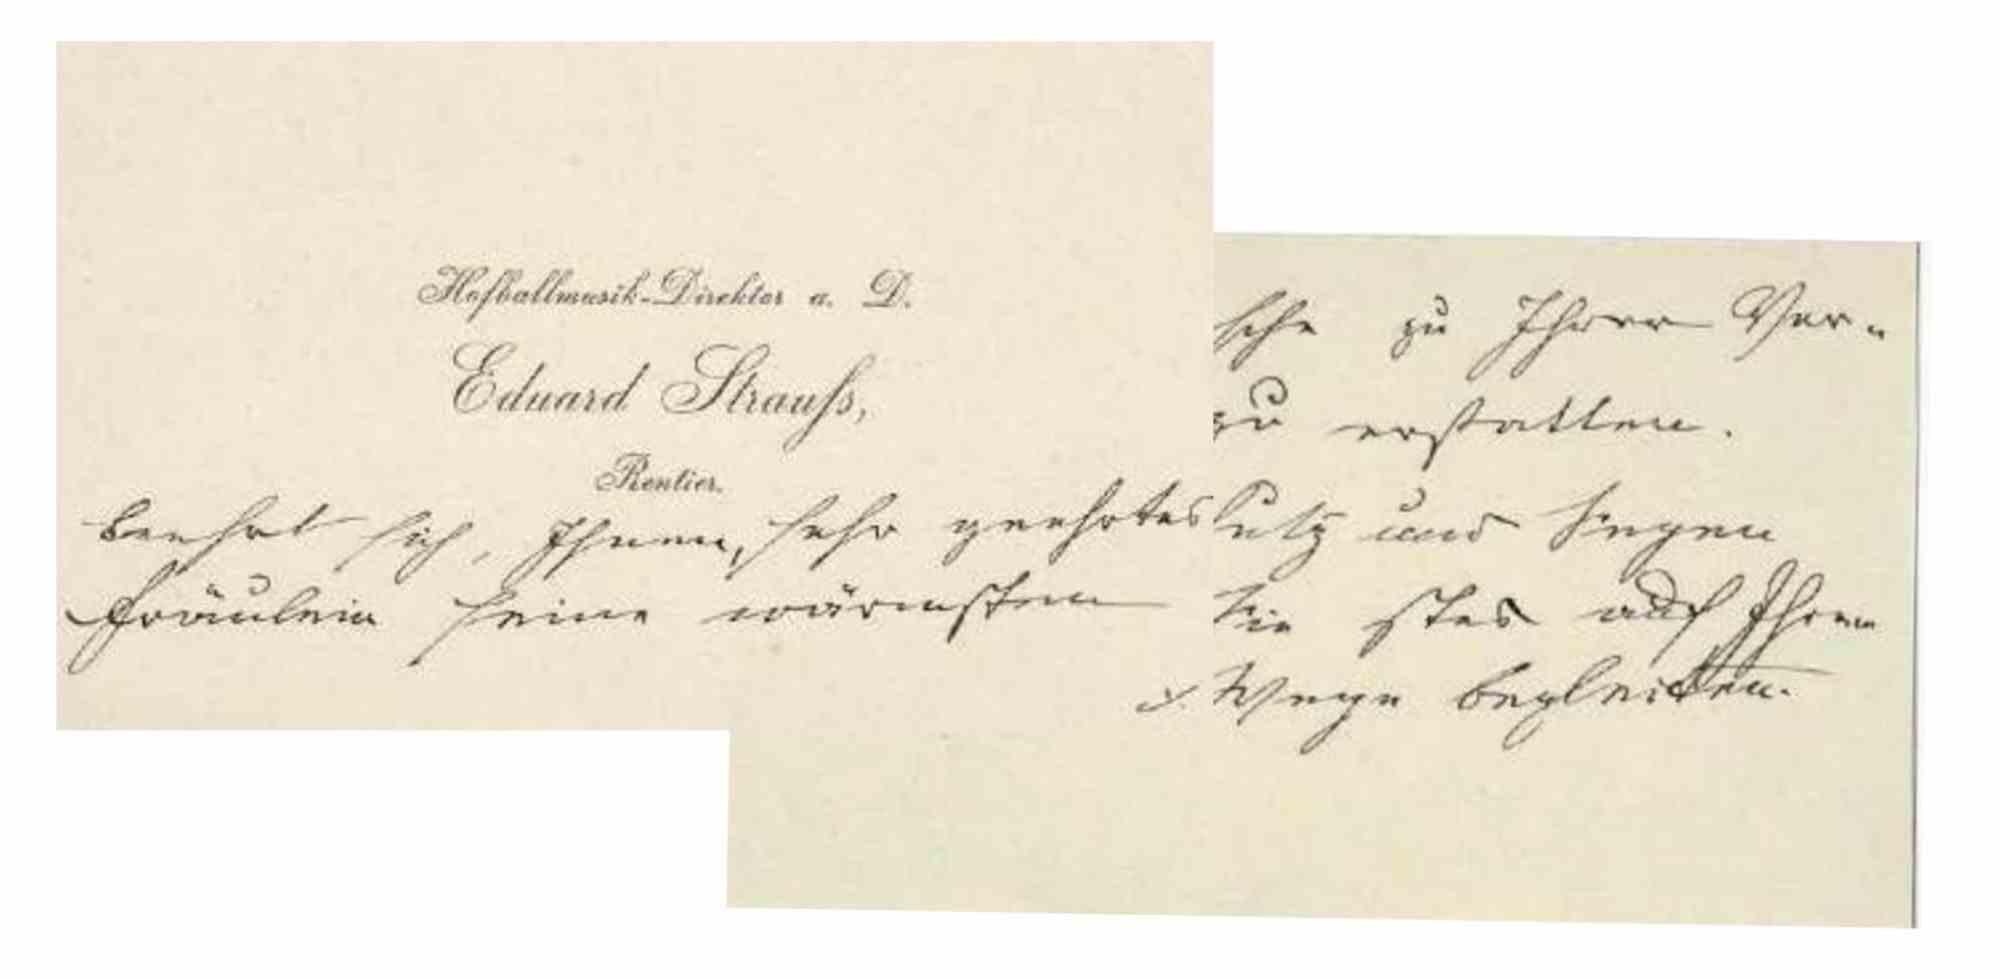 Hofballmusik-Direktor a. D.
Eduard Strauſs,
Rentier.
beehrt sich, Ihnen, sehr geehrtes
Fräulein seine wärmsten
sche zu Ihrer Ver-
zu erstatten.
hutz und Segen
Sie stets auf Ihrem
Wege begleiten.